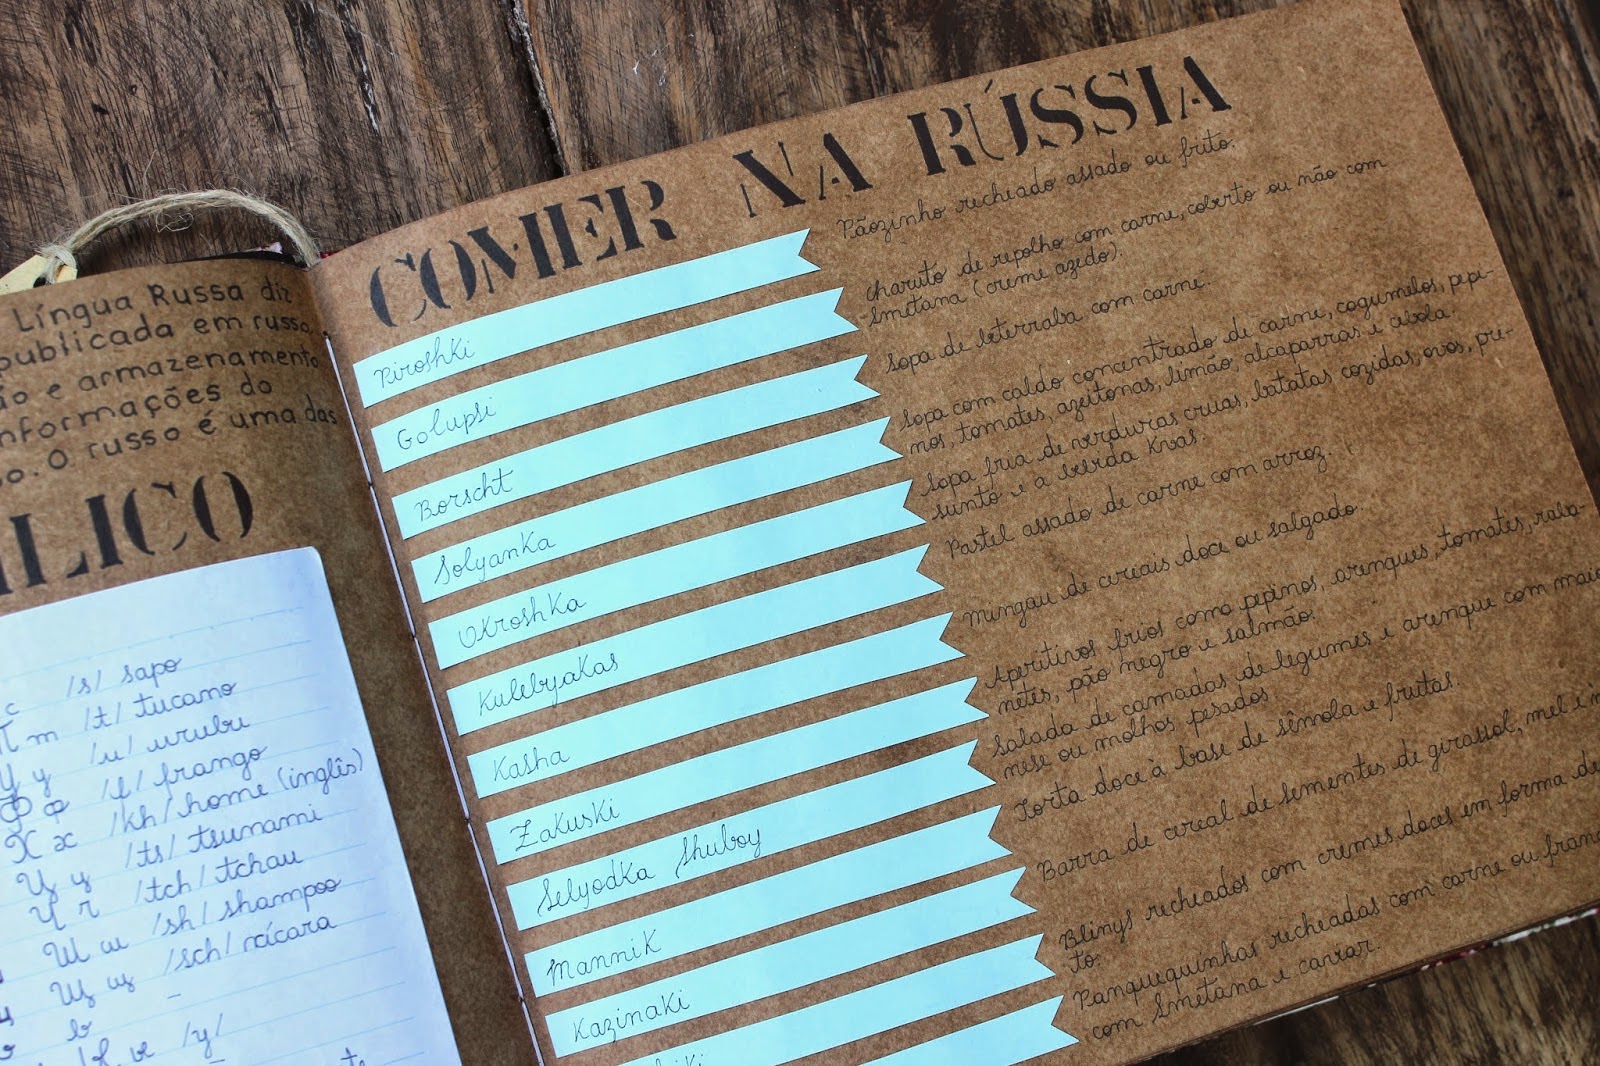 Língua Russa diz
publicada em russo,
ão e armazenamento
nformações do
o. O russo é uma das
LICO
c /s/ sapo
T m /t/ tucano
У у /u/ urubu
Ф ф /f/ frango
X x /kh/ home (inglês)
Ц ц /ts/ tsunami
/tch/ tchau
Ш ш /sh/ shampoo
Щ щ /sch/ xícara
/y/
COMER NA RÚSSIA
Piroshki
Pãozinho recheado assado ou frito.
Golupsi
charuto de repolho com carne, coberto ou não com
Smetana (creme azedo).
Borscht
Sopa de beterraba com carne.
Solyanka
Sopa com caldo concentrado de carne, cogumelos, pepi-
nos, tomates, azeitonas, limão, alcaparras e cebola.
Okroshka
Sopa fria de verduras cruas, batatas cozidas, ovos, pre-
sunto e a bebida Kvas.
Kulebyakas
Pastel assado de carne com arroz.
Kasha
Mingau de cereais doce ou salgado.
Zakuski
Aperitivos frios como pepinos, arenques, tomates, raba-
netes, pão negro e salmão.
Selyodka Shuboy
Salada de camadas de legumes e arenque com maio
nese ou molhos pesados.
Mannik
Torta doce à base de sêmola e frutas.
Kazinaki
Barra de cereal de sementes de girassol, mel e
Blinys recheados com cremes doces em forma de
to.
Panquequinhas recheadas com carne ou fran
com Smetana e caviar.